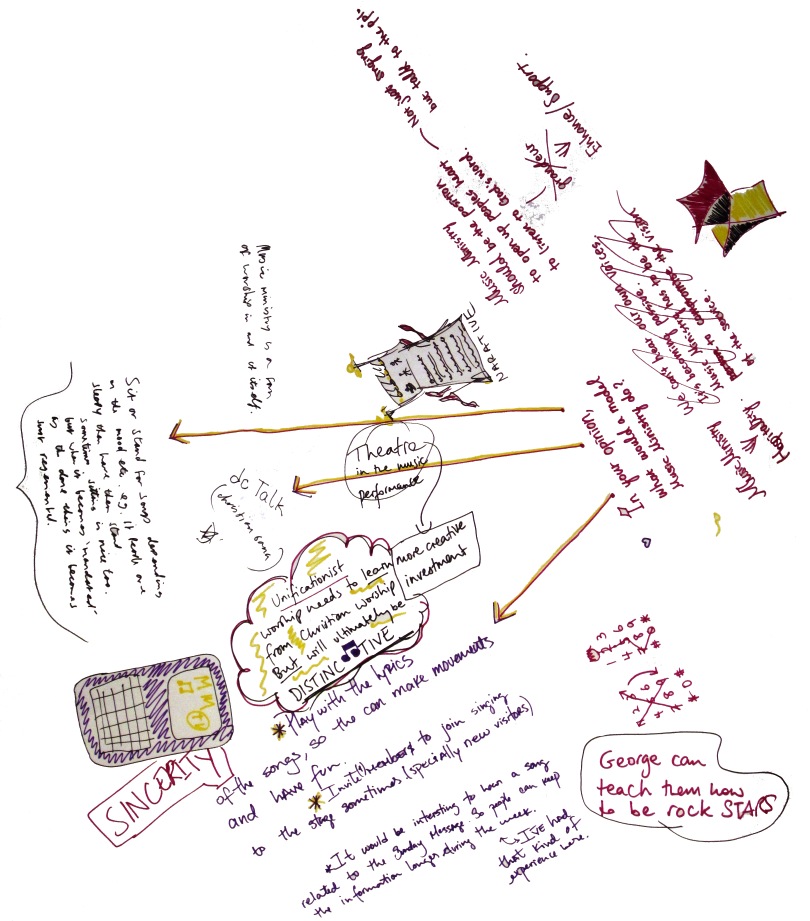 In your opinion,
what would a model
Music Ministry do?
Hospitality
Music Ministry
We can't hear our own voices
It's becoming passive.
Music Ministry has to be the
to compromise the vision
of the service.
Music Ministry
should be the position
to open up peoples heart
to listen to God's word.
Not just singing
but talk to the ppl.
grandeur
Enhance/Support.
NARATIVE
Music ministry is a form
of worship in and of itself.
Sit or stand for songs depending
on the mood etc. eg. if people are
sleepy then have them stand
sometimes sitting is nice too.
but when it becomes 'mandated'
as the done thing it becomes
just regimented.
Theatre
in the music
performance
more creative
investment
dc Talk
(christian band)
Unificationist
worship needs to learn
from Christian worship
But will ultimately be
DISTINCTIVE
MM
TV
SINCERITY
* Play with the lyrics
of the songs, so the can make movements
and have fun.
* Invite members to join singing
to the stage sometimes (specially new visitors)
* It would be intersting to hear a song
related to the Sunday Message. So people can keep
the information longer during the week.
I'VE had
that kind of
experience here.
George can
teach them how
to be rock STARS